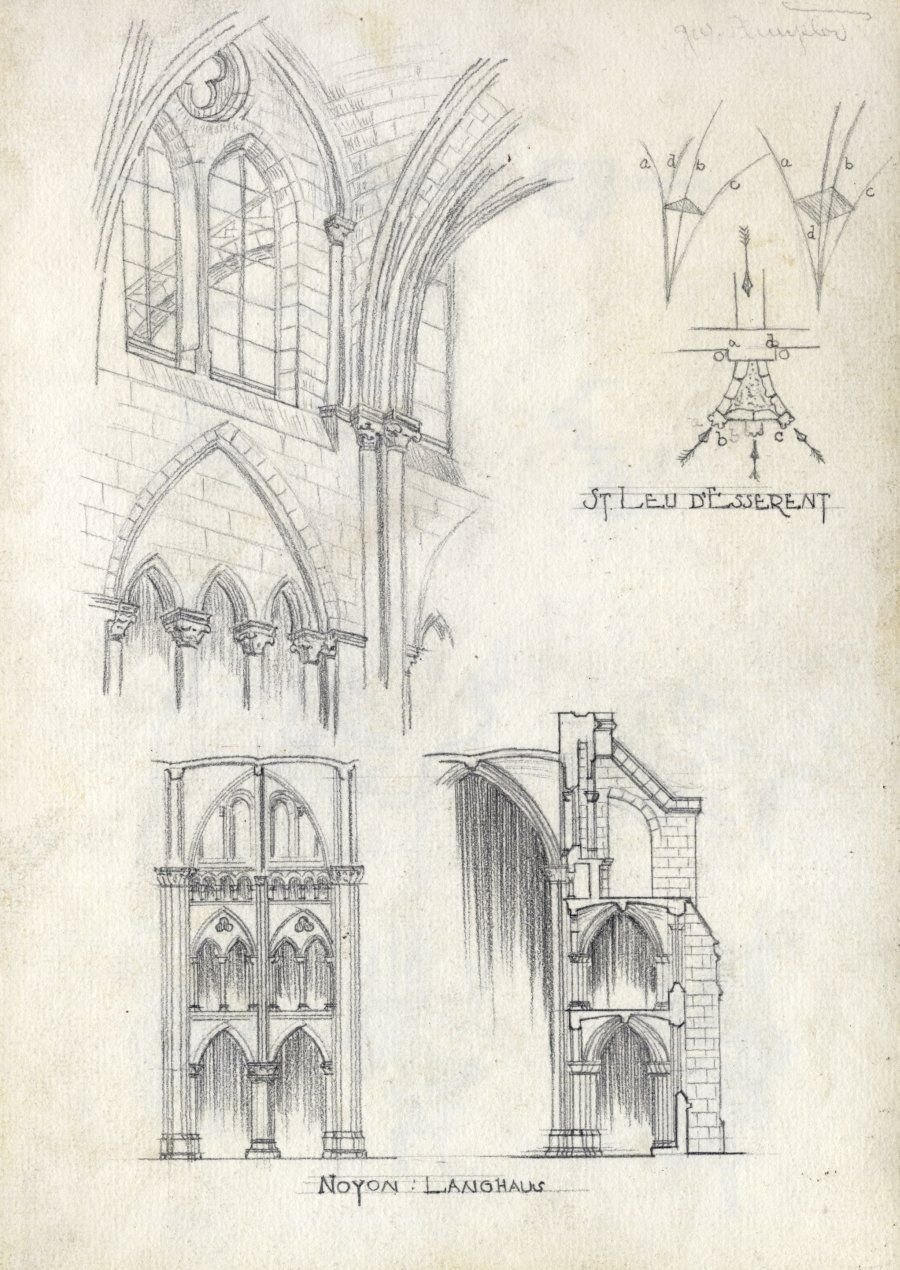 a d b c a b c d
a d
a b b c
ST. LEU D'ESSERENT
NOYON : LANGHAUS